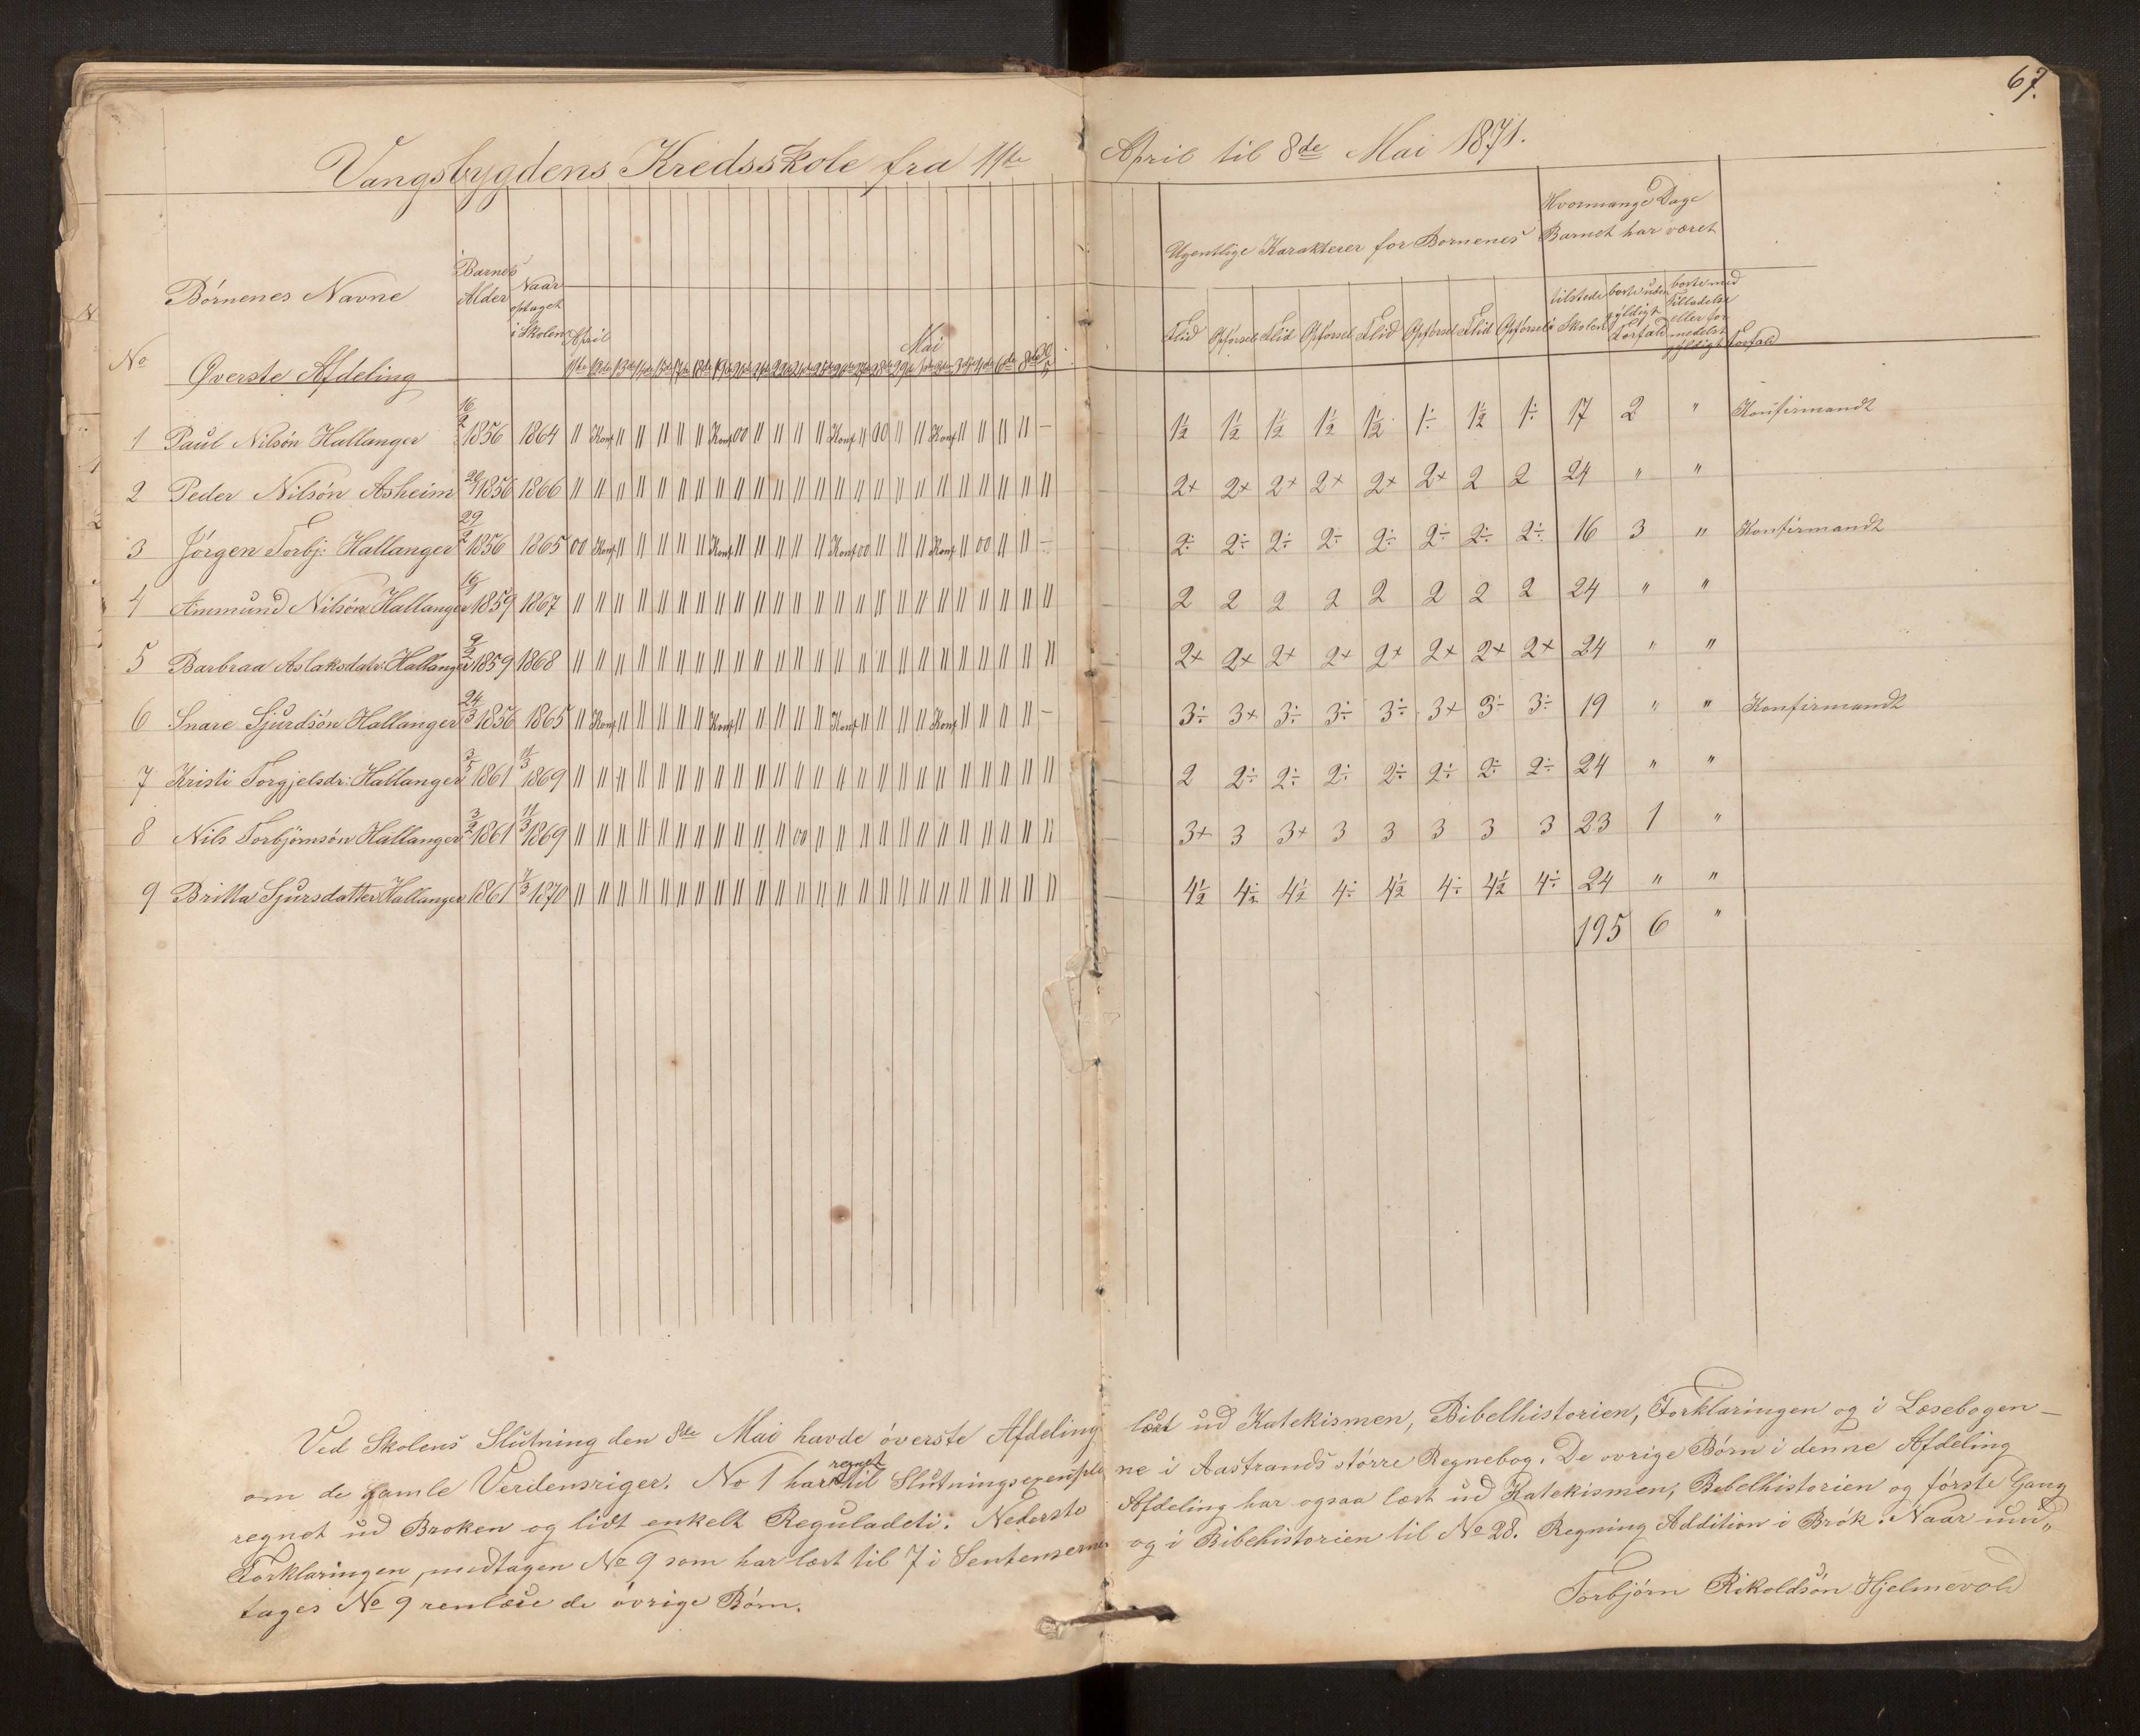 67.
Vangsbygdens Kredsskole fra 11te April til 8de Mai 1871.
No Børnenes Navne Barnets Alder Naar optaget i Skolen April Mai Ugentlige Karakterer for Børnenes Hvormange Dage Barnet har været
Øverste Afdeling Flid Opførsel Flid Opførsel Flid Opførsel Flid Opførsel tilstede i Skolen borte uden gyldigt Forfald borte med Tilladelse eller formedelst gyldigt Forfald
1 Paul Nilsøn Hallanger 16/2 1856 1864 || Konf || || || || || Konf 00 || || || || Konf || 00 || || Konf || || || || — 1½ 1½ 1½ 1½ 1½ 1÷ 1½ 1÷ 17 2 " Konfirmandt
2 Peder Nilsøn Asheim 1856 1866 || || || || || || || || || || || || || || || || || || || || || || || || 2+ 2+ 2+ 2+ 2+ 2+ 2 2 24 " "
3 Jørgen Torbj: Hallanger 29/2 1856 1865 00 Konf || || || || || Konf || || || || || Konf 00 || || || Konf || 00 || || — 2÷ 2÷ 2÷ 2÷ 2÷ 2÷ 2÷ 2÷ 16 3 " Konfirmandt
4 Ammund Nilsøn Hallanger 1859 1867 || || || || || || || || || || || || || || || || || || || || || || || || 2 2 2 2 2 2 2 2 24 " "
5 Barbraa Aslaksdatr: Hallanger 9/2 1859 1868 || || || || || || || || || || || || || || || || || || || || || || || || 2+ 2+ 2+ 2+ 2+ 2+ 2+ 2+ 24 " "
6 Snare Sjurdsøn Hallanger 24/3 1856 1865 || Konf || || || || || Konf || || || || || Konf || || || || Konf || || || || — 3÷ 3+ 3÷ 3÷ 3÷ 3+ 3÷ 3÷ 19 " " Konfirmandt
7 Kristi Torgjelsdr: Hallanger 3/5 1861 11/3 1869 || || || || || || || || || || || || || || || || || || || || || || || || 2 2÷ 2÷ 2÷ 2÷ 2÷ 2÷ 2÷ 24 " "
8 Nils Torbjørnsøn Hallanger 3/2 1861 11/3 1869 || || || || || || || || || || || 00 || || || || || || || || || || || || 3+ 3 3+ 3 3 3 3 3 23 1 "
9 Britta Sjursdatter Hallanger 1861 7/3 1870 || || || || || || || || || || || || || || || || || || || || || || || || 4½ 4½ 4½ 4÷ 4½ 4÷ 4½ 4÷ 24 " "
195 6 "
Ved Skolens Slutning den 8de Mai havde øverste Afdeling lært ud Katekismen, Bibelhistorien, Forklaringen og i Læsebogen—
om de gamle Verdensriger. No 1 har regnet til Slutningsexemple ne i Aastrands større Regnebog. De øvrige Børn i denne Afdeling
regnet ud Brøken og lidt enkelt Reguladeti. Nederste Afdeling har ogsaa lært ud Katekismen, Bibelhistorien og første Gang
Forklaringen, undtagen No 9 som har lært til 7 i Sentenserne og i Bibehistorien til No 28. Regning Addition i Brøk. Naar und„
tages No 9 renlæse de øvrige Børn.
Torbjørn Rikoldsøn Hjelmevold